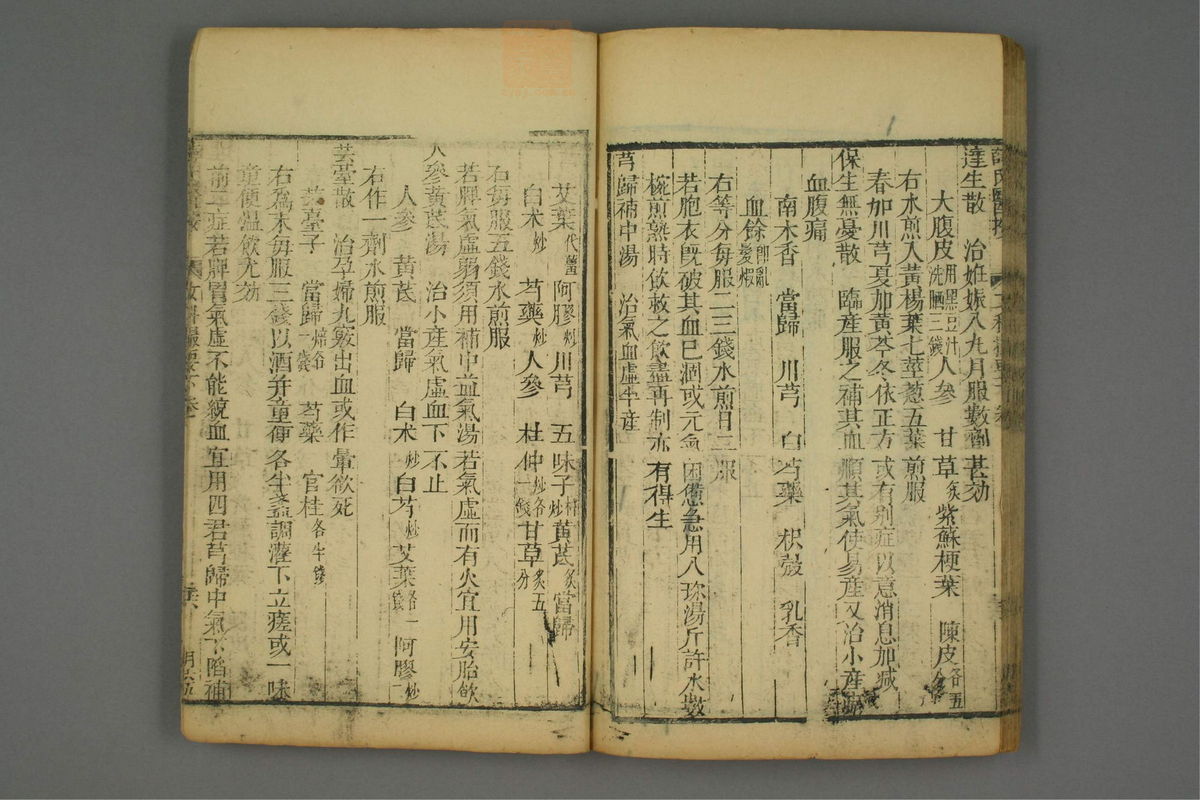 達生散　治姙娠八九月服數劑甚効
大腹皮用黑豆汁洗晒三錢　人參　甘草炙　紫蘇梗葉　陳皮各五分
右水煎入黃楊葉七莖葱五葉煎服
春加川芎夏加黃芩冬依正方或有别症以意消息加减
保生無憂散　臨産服之補其血順其氣使易産又治小産
血腹痛
南木香　當歸　川芎　白芍藥　枳殼　乳香
血餘即亂髮煅
右等分每服二三錢水煎日二服
若胞衣既破其血巳涸或元氣困憊急用八珍湯斤許水數
椀煎熟時飲救之飲盡再制亦有得生
芎歸補中湯　治氣血虛半産
艾葉代薑　阿膠炒　川芎　五味子杵炒　黃芪炙　當歸
白朮炒　芍藥炒　人參　杜仲炒各一錢　甘草炙五分
右每服五錢水煎服
若脾氣虛弱須用補中益氣湯若氣虛而有火宜用安胎飲
人參黃芪湯　治小産氣虛血下不止
人參　黃芪　當歸　白朮炒　白芍炒　艾葉各一錢　阿膠炒一
右作一劑水煎服
芸薹散　治孕婦九竅出血或作暈欲死
芸薹子　當歸焙各一錢　芍藥　官桂各半錢
右爲末每服三錢以酒并童便各半盞調灌下立瘥或一味
童便温飲尤効
前二症若脾胃氣虛不能統血宜用四君芎歸中氣下陷補